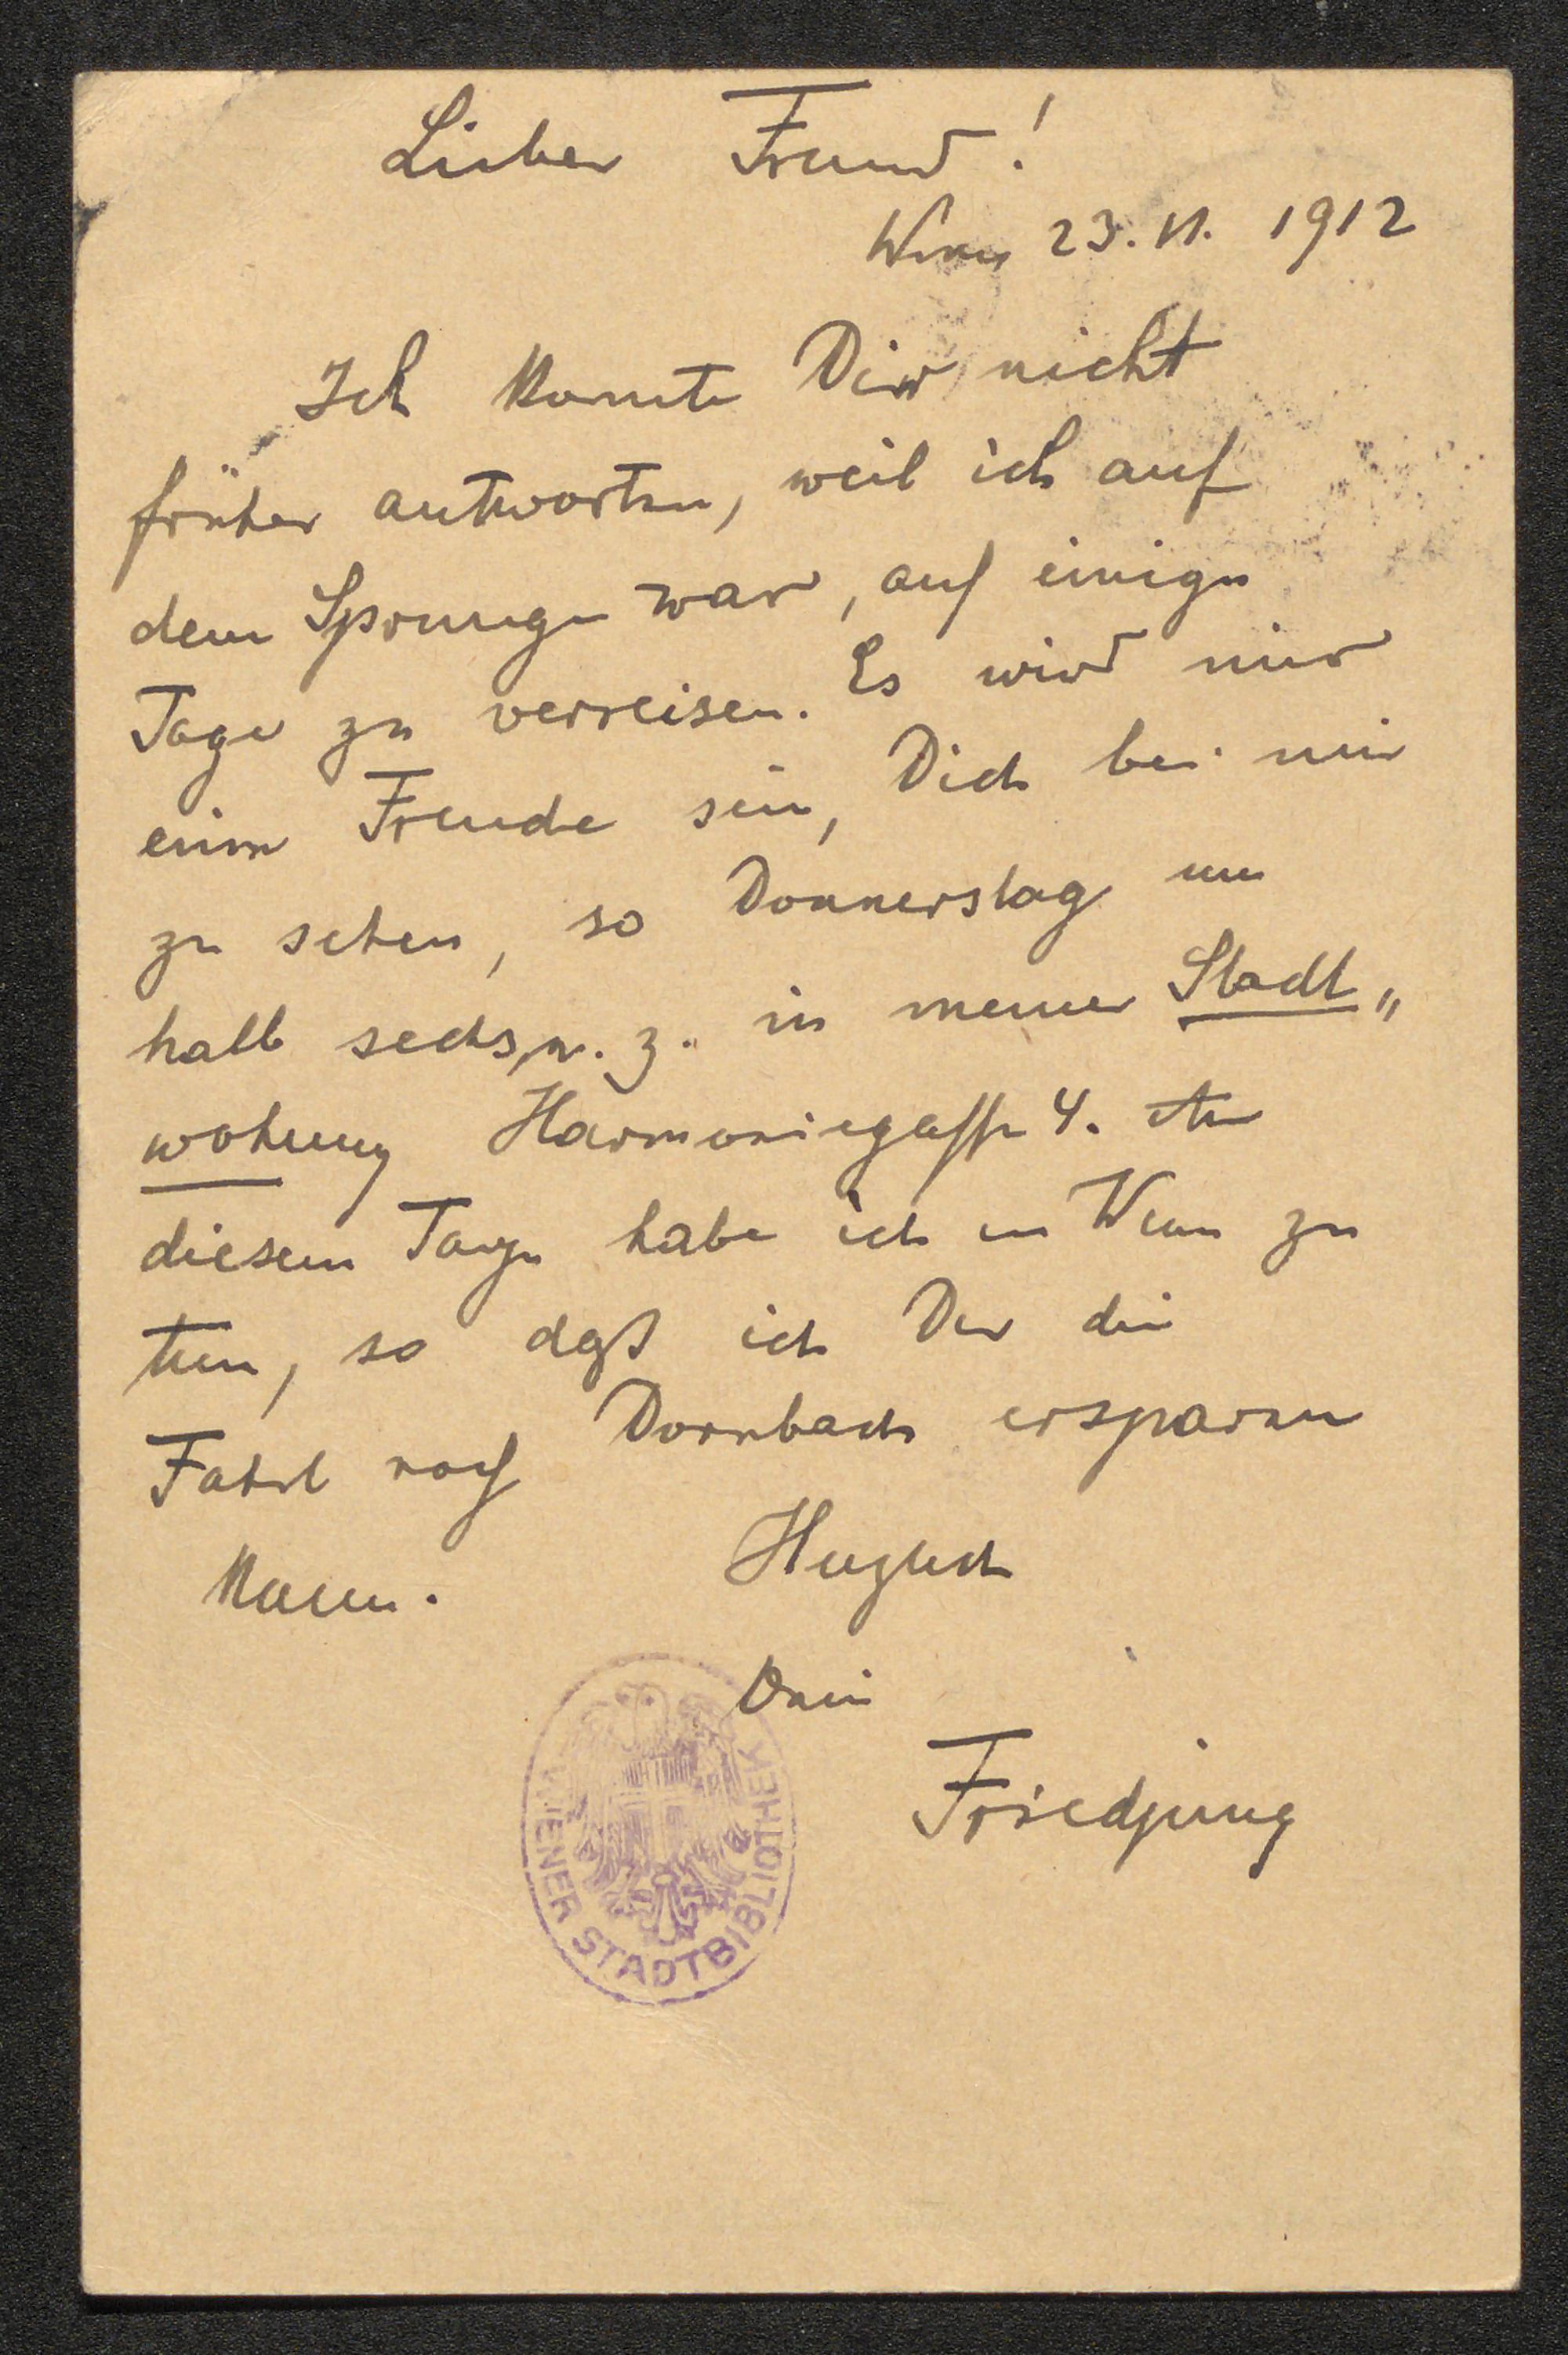 Lieber Freund!
Wien 23. VI. 1912
Ich konnte Dir nicht
früher antworten, weil ich auf
dem Sprunge war, auf einige
Tage zu verreisen. Es wird mir
eine Freude sein, Dich bei mir
zu sehen, so Donnerstag um
halb sechs, u. z. in meiner Stadt„
wohnung Harmoniegasse 4. An
diesem Tage habe ich in Wien zu
tun, so daß ich Dir die
Fahrt nach Dornbach ersparen
kann. Herzlich
Dein
Friedjung
WIENER STADTBIBLIOTHEK